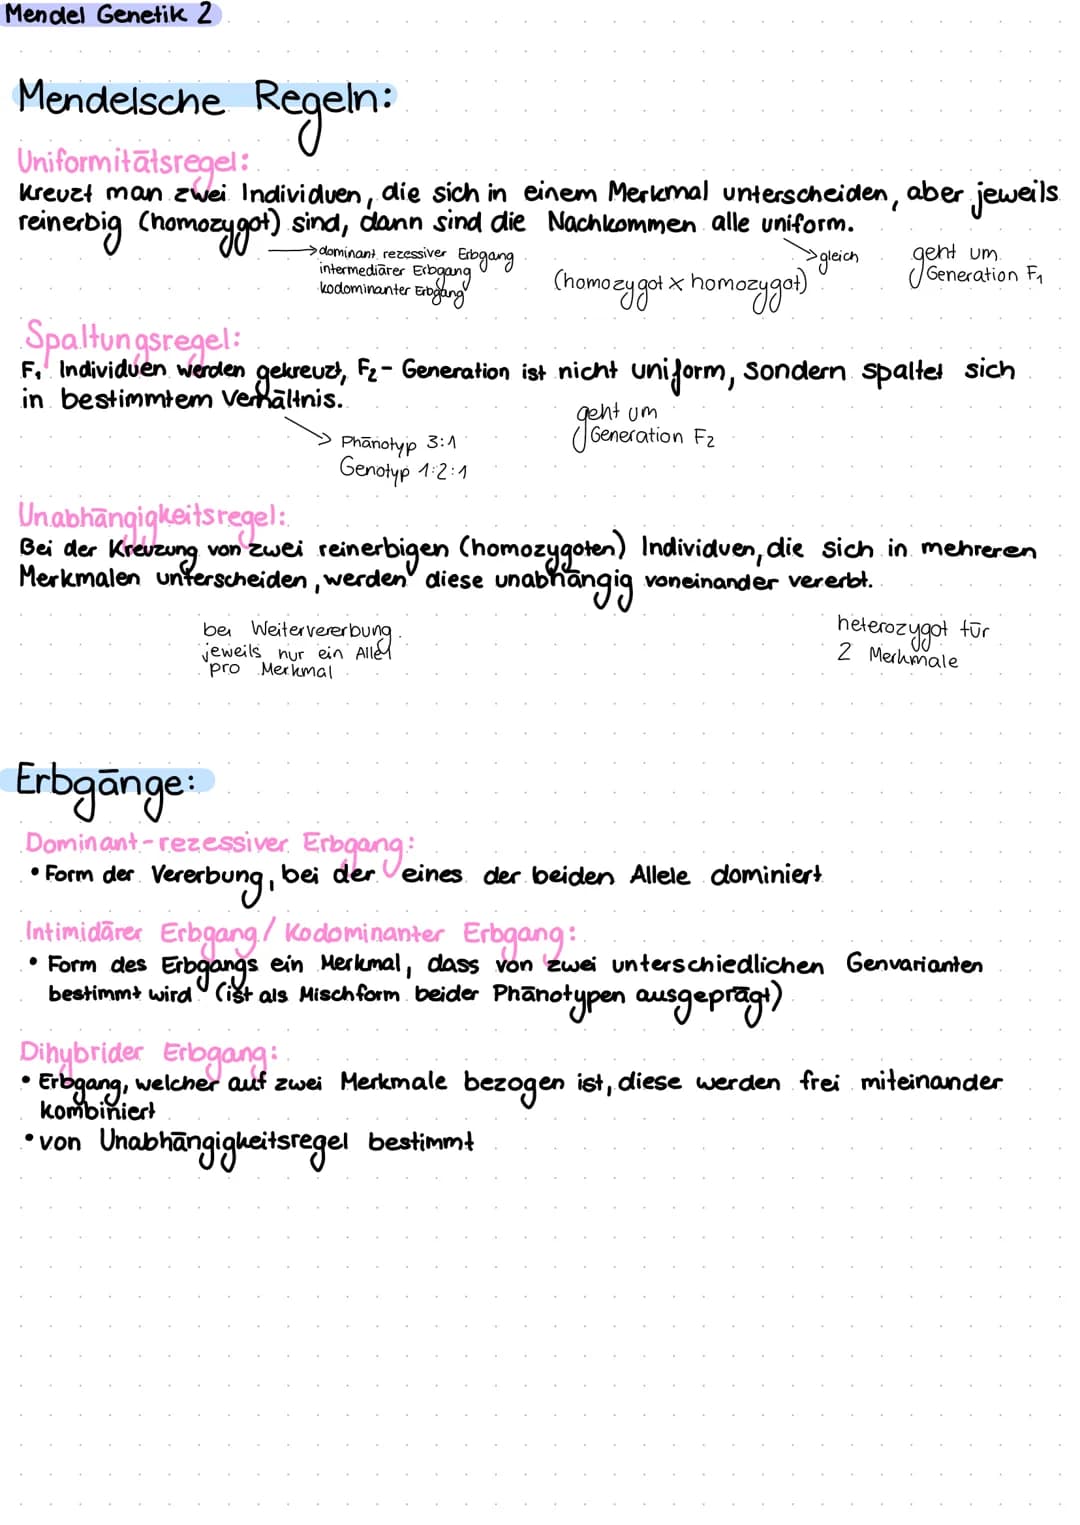 Mendel Genetik 2
Mendelsche Regeln:
Uniformitätsregel:
Kreuzt man zwei Individuen, die sich in einem Merkmal unterscheiden, aber jeweils
reinerbig (homozygot) sind, dann sind die Nachkommen alle uniform.
→ dominant rezessiver Erbgang
intermediärer Erbgang
kodominanter Erbgang
(homozygot x homozygot)
→ gleich
geht um
Generation F₁
Spaltungsregel:
F₁ Individuen werden gekreuzt, F₂- Generation ist nicht uniform, sondern spaltet sich
in bestimmtem Verhältnis.
→ Phänotyp 3:1
Genotyp 1:2:1
geht um
Generation F₂
Unabhängigkeitsregel:
Bei der Kreuzung von zwei reinerbigen (homozygoten) Individuen, die sich in mehreren
Merkmalen unterscheiden, werden diese unabhängig voneinander vererbt.
bei Weitervererbung
jeweils nur ein Allel
pro Merkmal
heterozygot für
2 Merkmale
Erbgänge:
Dominant-rezessiver Erbgang:
• Form der Vererbung, bei der eines der beiden Allele dominiert
Intimidärer Erbgang/ Kodominanter Erbgang:
• Form des Erbgangs ein Merkmal, dass von zwei unterschiedlichen Genvarianten
bestimmt wird (ist als Mischform beider Phänotypen ausgeprägt)
Dihybrider Erbgang:
• Erbgang, welcher auf zwei Merkmale bezogen ist, diese werden frei miteinander
kombiniert
• von Unabhängigkeitsregel bestimmt